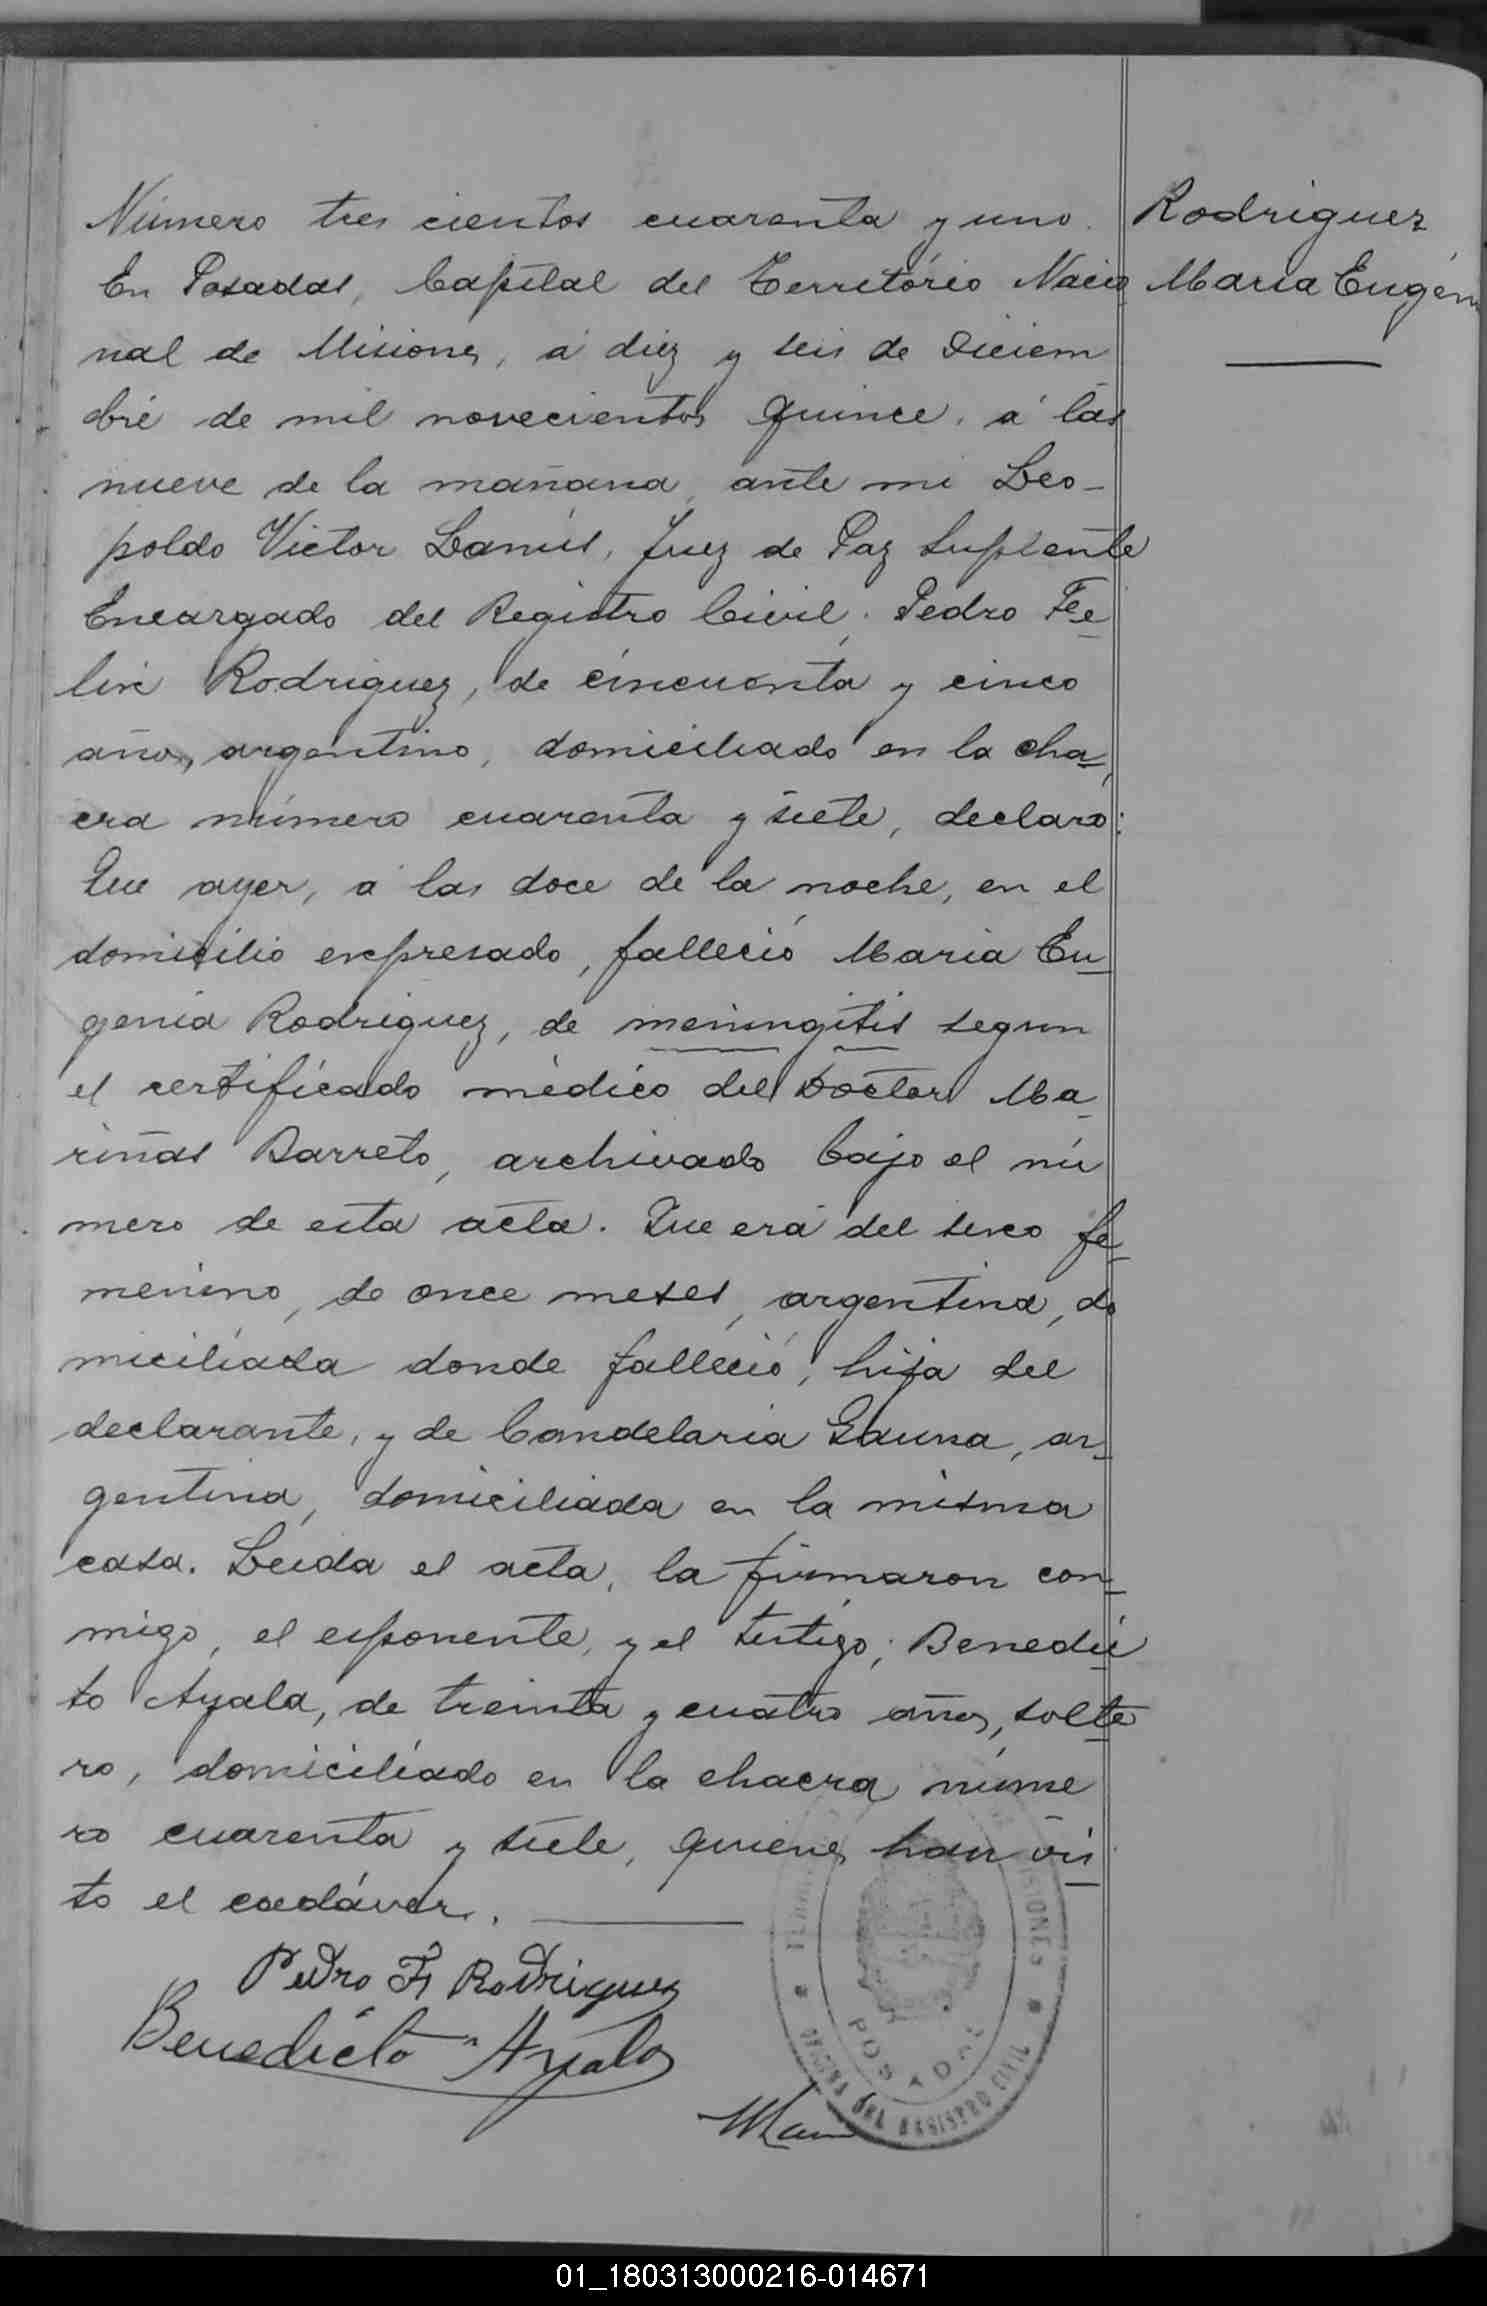 Número tres cientos cuarenta y uno.
En Posadas, Capital del Território Nacio
nal de Misiones, á diez y seis de Diciem
bre de mil novecientos quince, á las
nueve de la mañana, ante mi Leo-
poldo Victor Lanús, Juez de Paz Suplente
Encargado del Registro Civil; Pedro Fe-
lix Rodriguez, de cincuenta y cinco
años, argentino, domiciliado en la cha-
cra número cuarenta y siete, declaró:
Que ayer, á las doce de la noche, en el
domicilio expresado, falleció Maria Eu-
genia Rodriguez, de meningitis segun
el certificado médico del Doctor Ma-
riñas Barreto, archivado bajo el nú
mero de esta acta. Que era del sexo fe-
menino, de once meses, argentina, do
miciliada donde falleció, hija del
declarante, y de Candelaria Gauna, ar-
gentina, domiciliada en la misma
casa. Leida el acta, la firmaron con-
migo, el exponente, y el testigo; Benedic-
to Ayala, de treinta y cuatro años, solte-
ro, domiciliado en la chacra núme
ro cuarenta y siete, quienes han vis-
to el cadáver.
Pedro F. Rodriguez
Benedicto Ayala
Rodriguez
Maria Eugeni
MISIONES
POSADAS
OFICINA DEL REGISTRO CIVIL
01_180313000216-014671